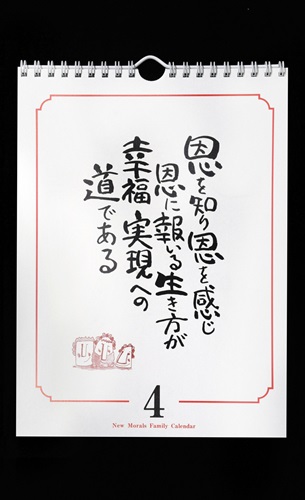 恩を知り恩を感じ
恩に報いる生き方が
幸福実現への
道である
4
New Morals Family Calendar